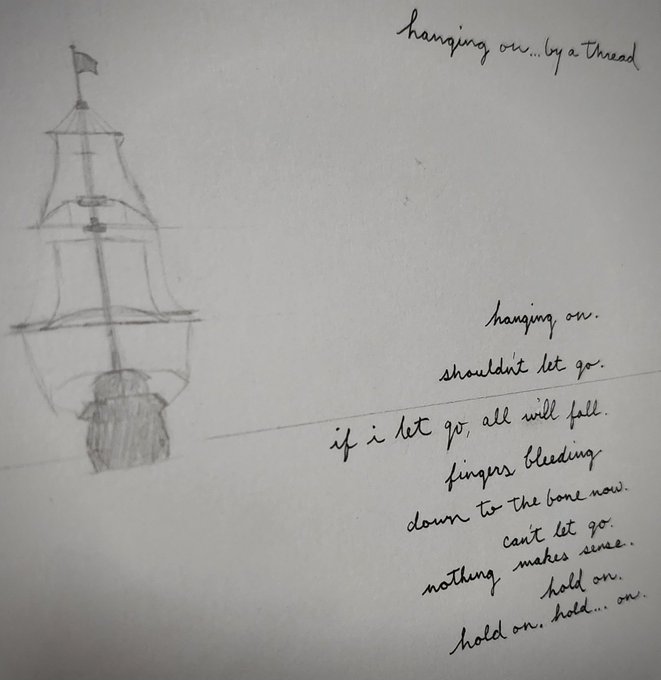 hanging on... by a thread
hanging on.
shouldn't let go.
if i let go, all will fall.
fingers bleeding
down to the bone now.
can't let go.
nothing makes sense.
hold on.
hold on. hold... on.